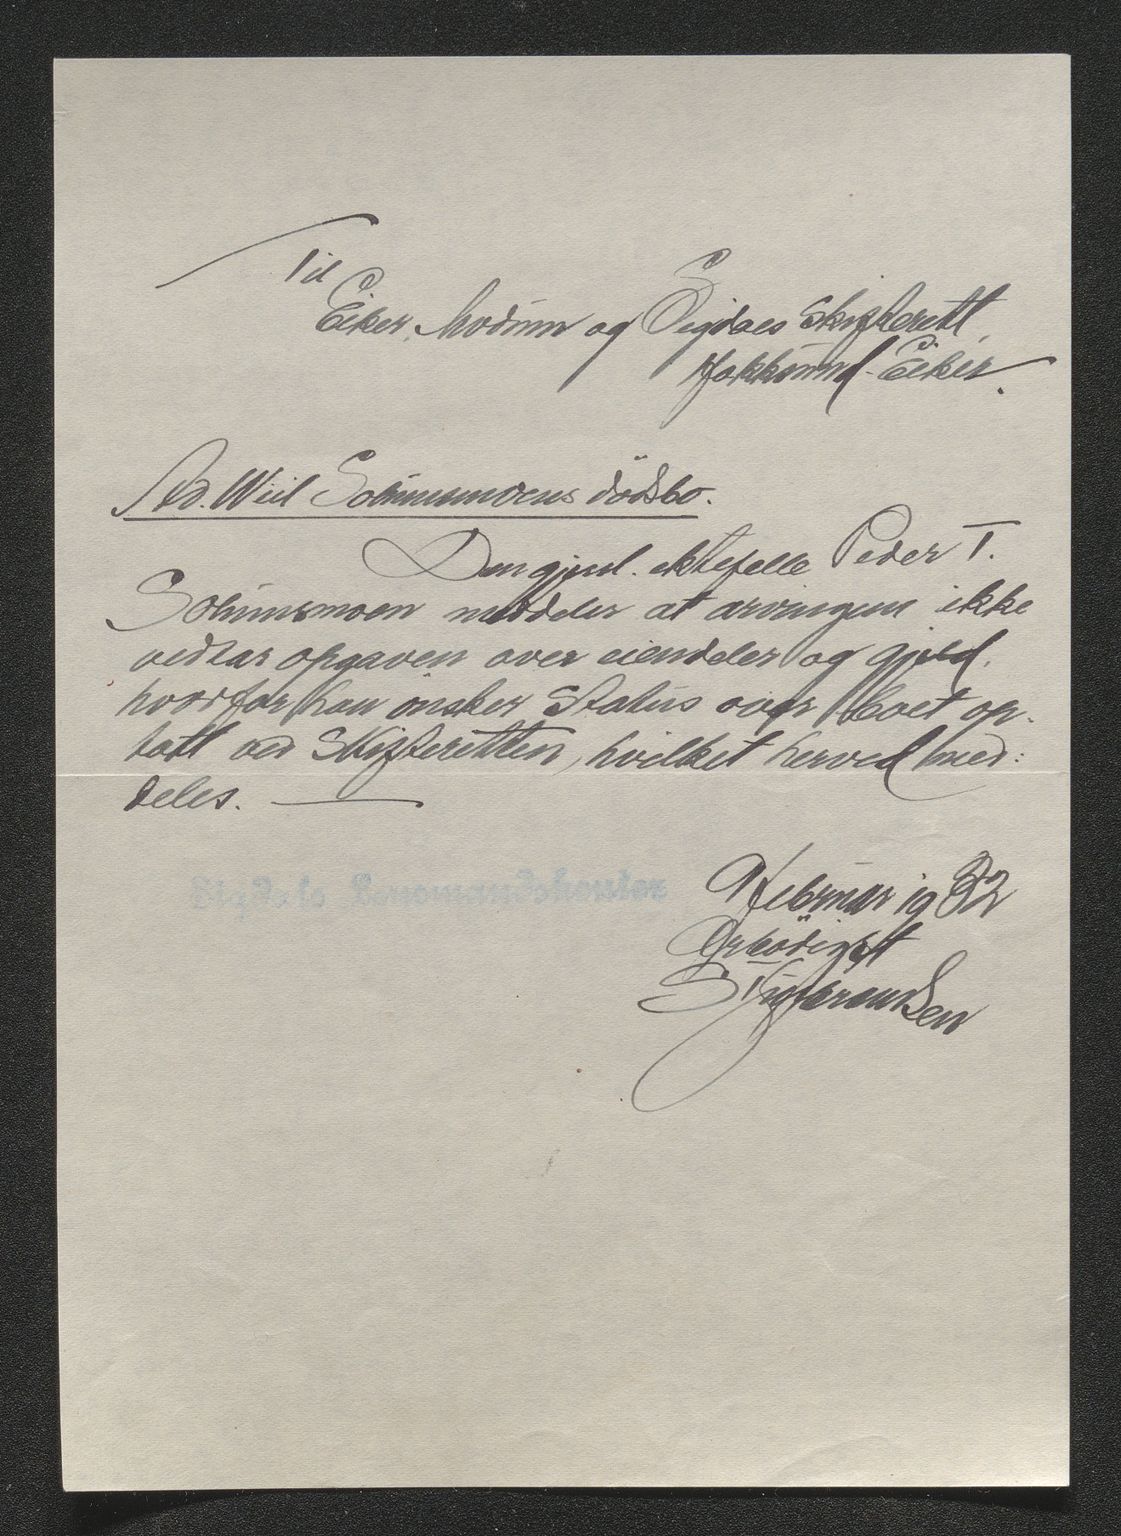 Til
Eiker, Modum og Sigdals skifterett,
Hokksund - Eiker.
Ad. Wiil Sohnsmoens dödsbo.
Den gjenl. ektefelle Peder T.
Sohnsmoen meddeler at arvingene ikke
vedtar opgaven over eiendeler og gjeld,
hvorfor han önsker Status over boet op-
tatt ved Skifteretten, hvilket herved med-
deles.
Sigdals Lensmandskontor
9 februar 1932
Ærbödigst